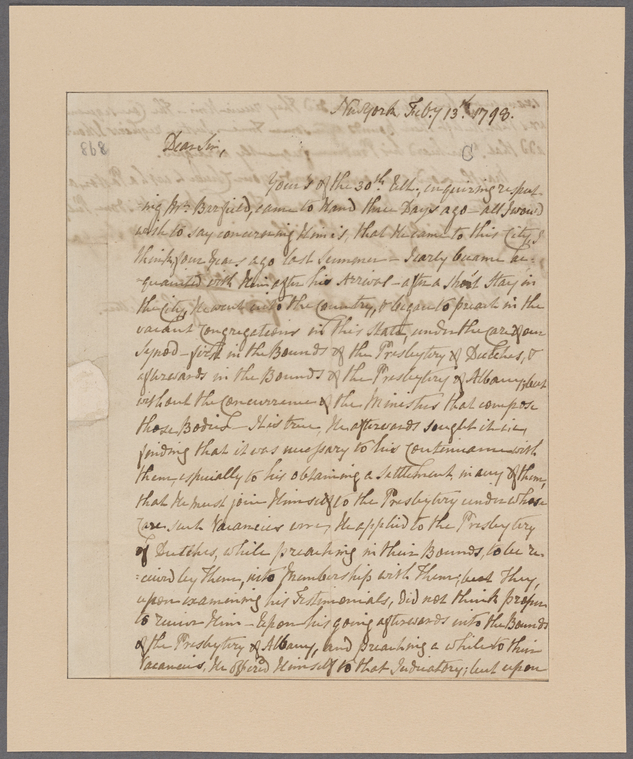 New York Feb.y 13th. 1798.
Dear Sir,
Yours of the 30th Ult., enquiring respect-
ing Mr. Birfield, came to Hand three Days ago - all I would
wish to say concerning Him is, that He came to this City, I
think four Years ago last Summer - I early became ac-
quainted with Him after his Arrival - after a short Stay in
the City, He went into the Country, & began to preach in the
vacant Congregations in this State, under the Care of our
Synod - first in the Bounds of the Presbytery of Dutches, &
afterwards in the Bounds of the Presbytery of Albany, but
without the Concurrence of the Ministers that compose
those Bodies - It is true, He afterwards sought it
finding that it was necessary to his Continuance with
them, especially to his obtaining a Settlement in any of them,
that He must join Himself to the Presbytery under whose
Care such Vacancies were, He applied to the Presbytery
of Dutches, while preaching in their Bounds, to be re-
=ceived by Them, into Membership with Them; but They,
upon examining his Testimonials, did not think proper
to receive Him - Upon his going afterwards into the Bounds
of the Presbytery of Albany, and Preaching a while to their
Vacancies, He offered Himself to that Judicatory; but upon